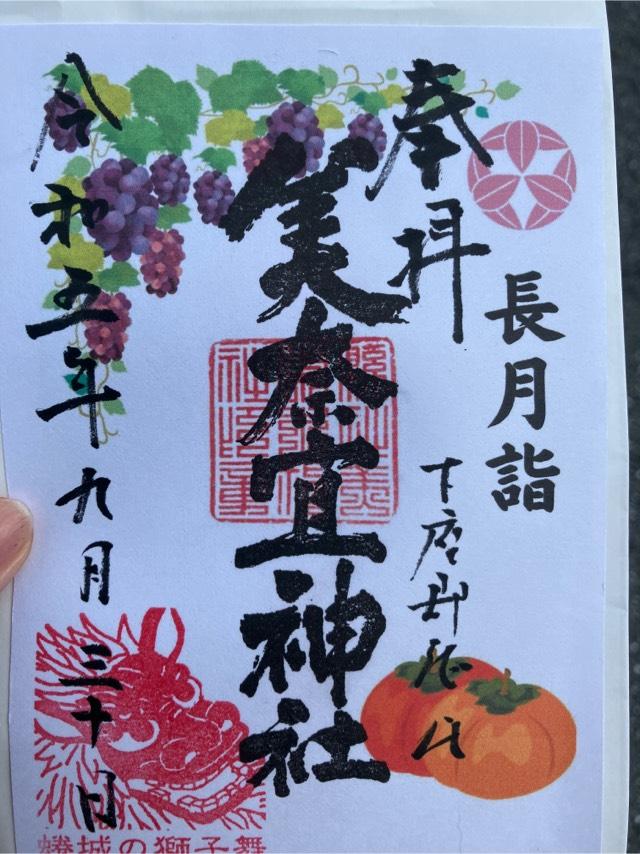 長月詣
奉拝
下座郡
美奈宜神社
令和五年九月三十日
蜷城の獅子舞